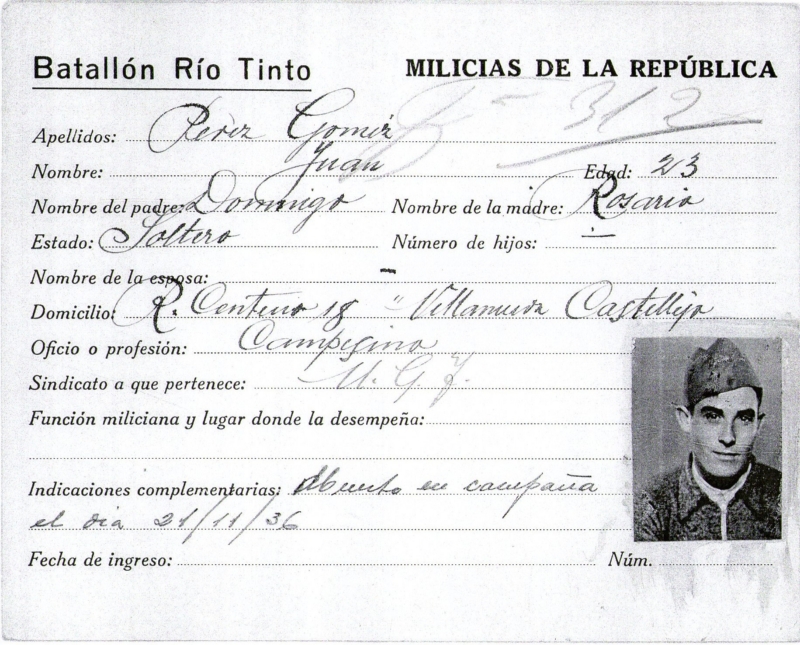 Batallón Río Tinto MILICIAS DE LA REPÚBLICA
312
Apellidos: Pérez Goméz
Nombre: Juan Edad: 23
Nombre del padre: Domingo Nombre de la madre: Rosario
Estado: Soltero Número de hijos: —
Nombre de la esposa: —
Domicilio: R. Centeno 18 " Villanueva Castellijo
Oficio o profesión: Campesino
Sindicato a que pertenece: U. G. T.
Función miliciana y lugar donde la desempeña:
Indicaciones complementarias: Muerto en campaña
el dia 21/11/36
Fecha de ingreso: Núm.